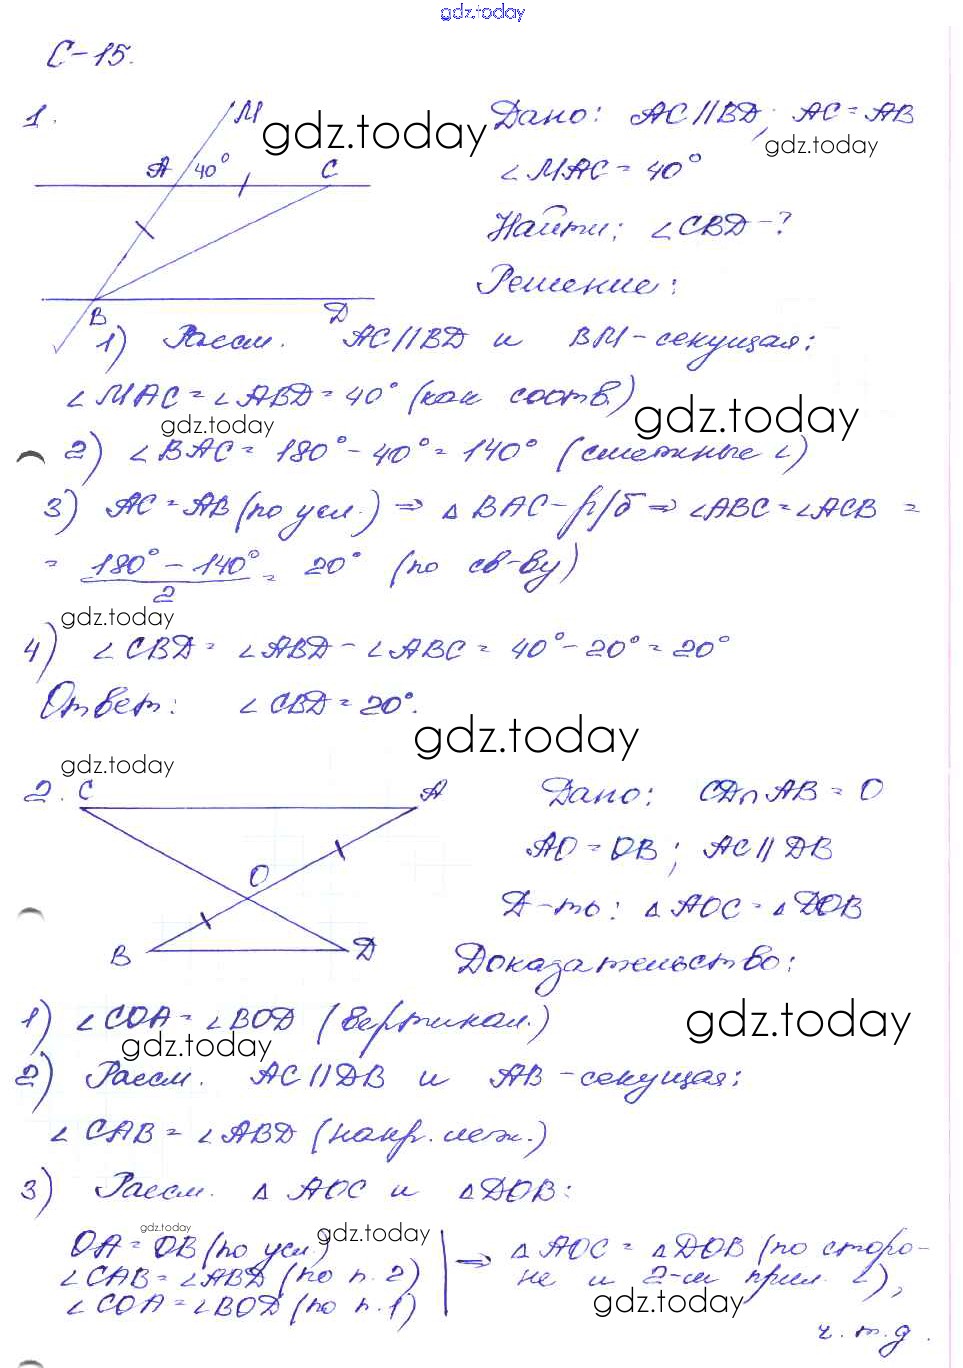 gdz.today
С-15.
1.
M
gdz.today
A 40° C
B D
Дано: AC||BD; AC = AB
gdz.today
∠MAC = 40°
Найти: ∠CBD - ?
Решение:
1) Рассм. AC||BD и BM - секущая:
∠MAC = ∠ABD = 40° (как соотв.)
gdz.today
gdz.today
2) ∠BAC = 180° - 40° = 140° (смежные ∠)
3) AC = AB (по усл.) ⇒ △BAC - р/б ⇒ ∠ABC = ∠ACB =
= (180° - 140°)/2 = 20° (по св-ву)
gdz.today
4) ∠CBD = ∠ABD - ∠ABC = 40° - 20° = 20°
Ответ: ∠CBD = 20°.
gdz.today
gdz.today
2. C A
O
B D
Дано: CD∩AB = O
AO = OB; AC||DB
Д-ть: △AOC = △DOB
Доказательство:
1) ∠COA = ∠BOD (вертикал.)
gdz.today
gdz.today
2) Рассм. AC||DB и AB - секущая:
∠CAB = ∠ABD (накр. леж.)
3) Рассм. △AOC и △DOB:
gdz.today
gdz.today
OA = OB (по усл.)
∠CAB = ∠ABD (по п. 2)
∠COA = ∠BOD (по п. 1)
⇒ △AOC = △DOB (по сторо-
не и 2-м прил. ∠),
gdz.today
ч.т.д.